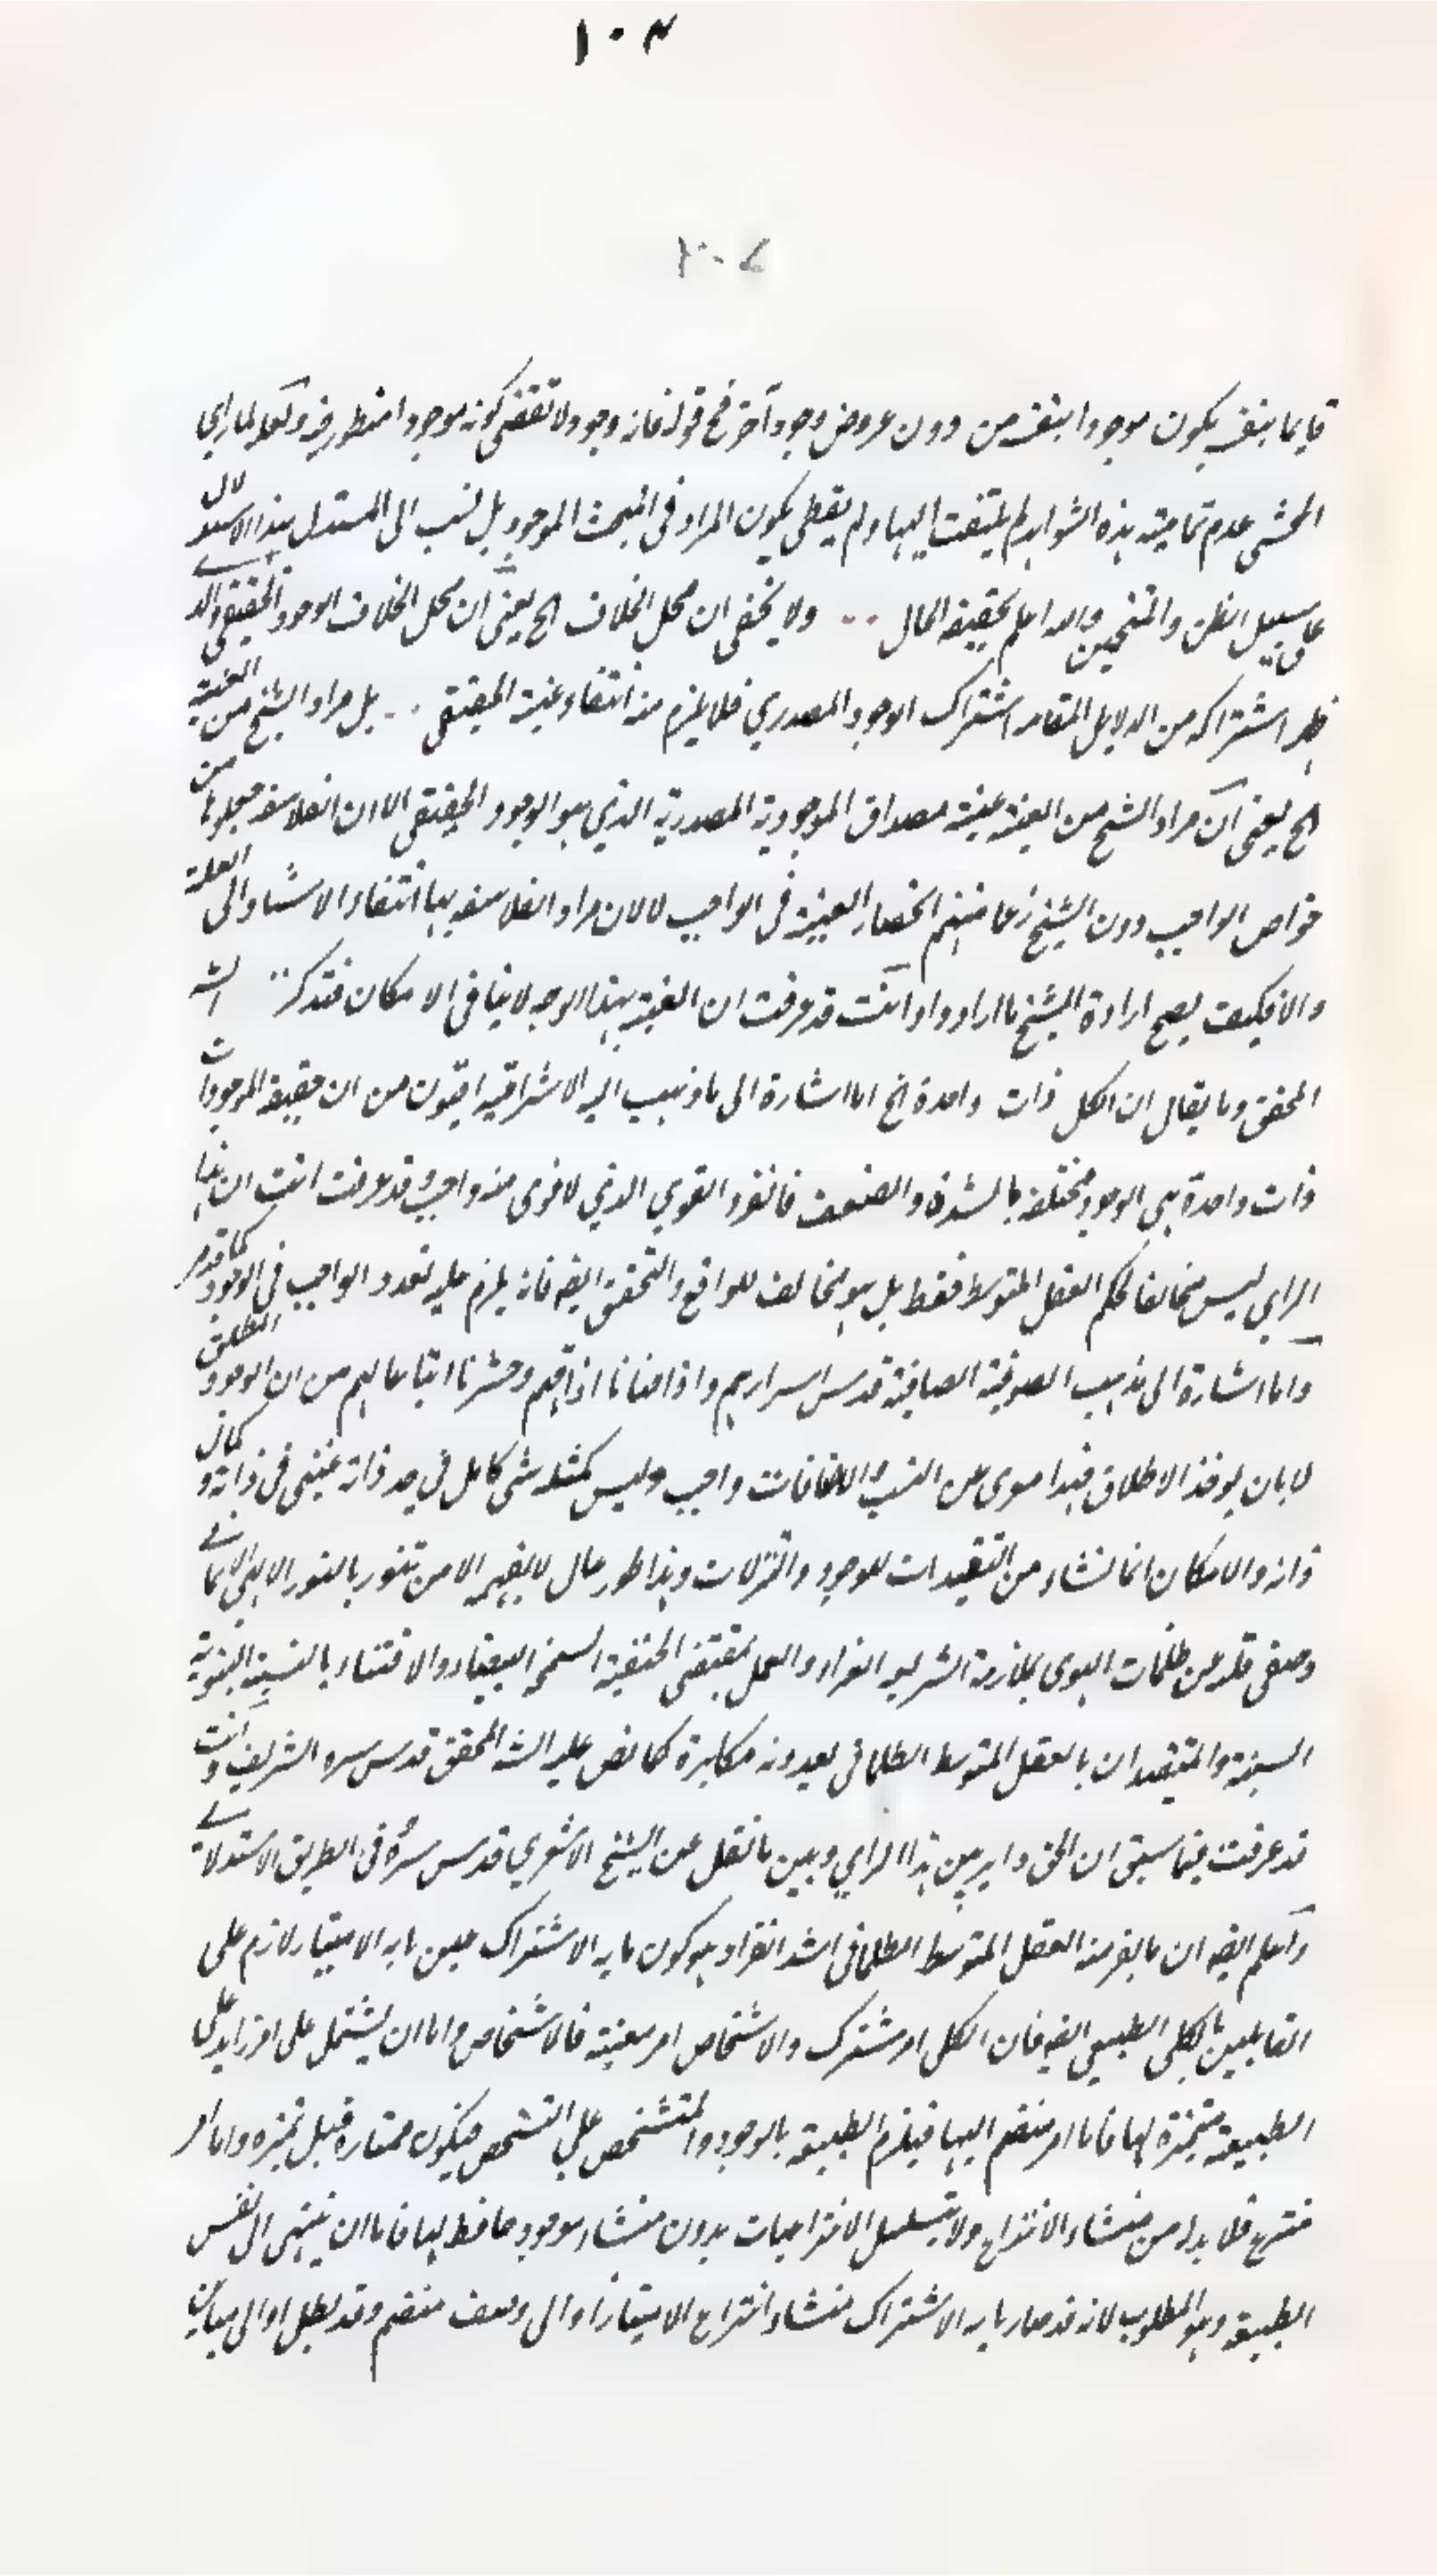 ١٠٤
١٠٤
قايما بنفسه يكون موجودا بنفسه من دون عروض وجود آخر فح قوله فانه وجود ولا تقتضى كونه موجودا منظور فيه ولعله لما راى
المحشى عدم تمامية هذه الشواهد لم يلتفت اليها ولم يقطع بكون المراد فى المبحث الموجود بل نسب الى المستدل بهذا الاستدلال
على سبيل الظن والتخمين والله اعلم بحقيقة الحال ولا يخفى ان محل الخلاف الخ يعنى ان محل الخلاف الوجود الحقيقى والذى
ظهر اشتراكه من الدلايل المقامه اشتراك الوجود المصدري فلا يلزم منه انتفاء عينية الحقيقى بل مراد الشيخ من العينية
الخ يعنى ان مراد الشيخ من العينية عينية مصداق الموجودية المصدرية الذي هو الوجود الحقيقى الا ان الفلاسفه جعلوها من
خواص الواجب دون الشيخ زعما منهم انحصار العينية فى الواجب لا لان مراد الفلاسفه بها انتفاء الاستناد الى العلة
والا فكيف يصح ارادة الشيخ ما ارادوا وانت قد عرفت ان العينية بهذا الوجه لا ينافى الامكان فتذكر الشه
المحقق وما يقال ان الكل ذات واحدة الخ اما اشارة الى ما ذهب اليه الاشراقية من ان حقيقة الموجودات
ذات واحدة هى الوجود مختلفة بالشدة والضعف فالفرد القوي الذي لا قوى منه واجب وقد عرفت انت ان هذا
الراى ليس مخالفا لحكم العقل المتوسط فقط بل هو مخالف للواقع والتحقيق ايضه فانه يلزم عليه تعدد الواجب فى الوجود كما تقدم
واما اشارة الى مذهب الصوفية الصافية قدس اسرارهم واذاقنا ما اذاقهم وحشرنا اتباعا لهم من ان الوجود المطلق
لا بان يوخذ الاطلاق قيدا سوى عن النسب والاضافات واجب وليس كمثله شى كامل فى حد ذاته غنى فى ذاته وكمال
ذاته والامكان انما نشاء من التقيدات للوجود والتنزلات وهذا طور عال لا يفهم الا من تنور بالنور الالهى الايمانى
وصفى قلبه عن ظلمات الهوى بملازمة الشريعه الغراء والعمل بمقتضى الحنفية السمحة البيضاء والاقتداء بالسنة النبوية
السنية والمتقيدان بالعقل المتوسط الظلمانى يعدونه مكابرة كما نص عليه الشه المحقق قدس سره الشريف وانت
قد عرفت فيما سبق ان الحق داير بين هذا الراي وبين ما نقل عن الشيخ الاشعري قدس سره فى الطريق الاستدلالى
واعلم ايضه ان ما يفر منه العقل المتوسط الظلمانى اشد الفرار وهو كون ما به الاشتراك عين ما به الامتياز لازم على
القايلين بالكلى الطبيعى ايضه فان الكلى امر مشترك والاشخاص امر معينة فالاشخاص واما ان يشتمل على امر زايد على
الطبيعة متميزة لها فاما امر منضم اليها فيلزم الطبيعة بالوجود والتشخص على التشخص فيكون ممتازه قبل تميزه واما امر
منتزع فلا بد له من منشاء الانتزاع ولا يتسلسل الانتزاعيات بدون منشاء موجود حافظ لها فاما ان ينتهى الى نفس
الطبيعة وهو المطلوب لانه قد صار ما به الاشتراك منشاء انتزاع الامتياز او الى وصف منضم وقد بطل او الى مباين